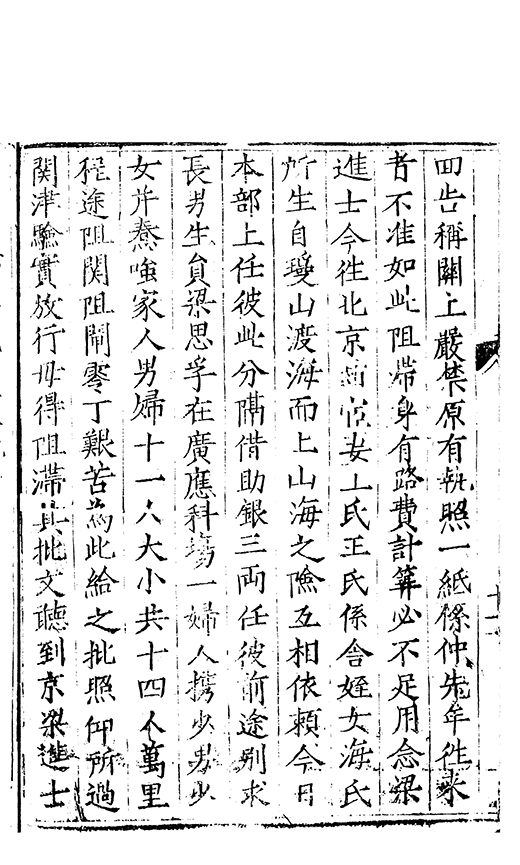 回告稱關上嚴禁原有執照一紙係仲先年往來
者不准如此阻滯身有路費計算必不足用念梁
進士今往北京 妻 氏王氏係舍姪女海氏
所生自瓊山渡海而上山海之險互相依賴今日
本部上任彼此分隔借助銀三兩任彼前途別求
長男生員梁思孚在廣應科場一婦人携少男少
女并養 家人男婦十一人大小共十四人萬里
程途阻関阻閘零丁艱苦為此給之批照仰所過
関津驗實放行毋得阻滯其批文聽到京梁進士